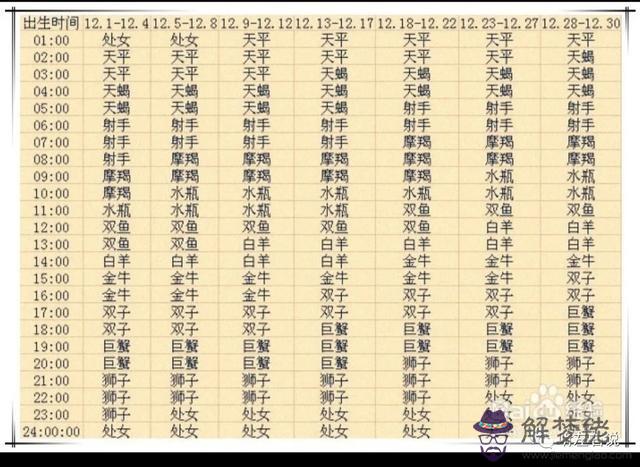 出生时间 12.1-12.4 12.5-12.8 12.9-12.12 12.13-12.17 12.18-12.22 12.23-12.27 12.28-12.30
01:00 处女 处女 天平 天平 天平 天平 天平
02:00 天平 天平 天平 天平 天平 天平 天蝎
03:00 天平 天平 天平 天蝎 天蝎 天蝎 天蝎
04:00 天蝎 天蝎 天蝎 天蝎 天蝎 天蝎 天蝎
05:00 天蝎 天蝎 天蝎 天蝎 射手 射手 射手
06:00 射手 射手 射手 射手 射手 射手 射手
07:00 射手 射手 射手 射手 摩羯 摩羯 摩羯
08:00 射手 摩羯 摩羯 摩羯 摩羯 摩羯 摩羯
09:00 摩羯 摩羯 摩羯 摩羯 摩羯 水瓶 水瓶
10:00 摩羯 水瓶 水瓶 水瓶 水瓶 水瓶 水瓶
11:00 水瓶 水瓶 水瓶 水瓶 双鱼 双鱼 双鱼
12:00 双鱼 双鱼 双鱼 双鱼 双鱼 白羊 白羊
13:00 双鱼 双鱼 白羊 白羊 白羊 白羊 白羊
14:00 白羊 白羊 白羊 白羊 金牛 金牛 金牛
15:00 金牛 金牛 金牛 金牛 金牛 金牛 双子
16:00 金牛 金牛 金牛 双子 双子 双子 双子
17:00 双子 双子 双子 双子 双子 双子 巨蟹
18:00 双子 双子 双子 巨蟹 巨蟹 巨蟹 巨蟹
19:00 巨蟹 巨蟹 巨蟹 巨蟹 巨蟹 巨蟹 巨蟹
20:00 巨蟹 巨蟹 巨蟹 巨蟹 狮子 狮子 狮子
21:00 狮子 狮子 狮子 狮子 狮子 狮子 狮子
22:00 狮子 狮子 狮子 狮子 狮子 处女 处女
23:00 狮子 处女 处女 处女 处女 处女
24:00:00 处女 处女 处女 处女 处女
解梦佬